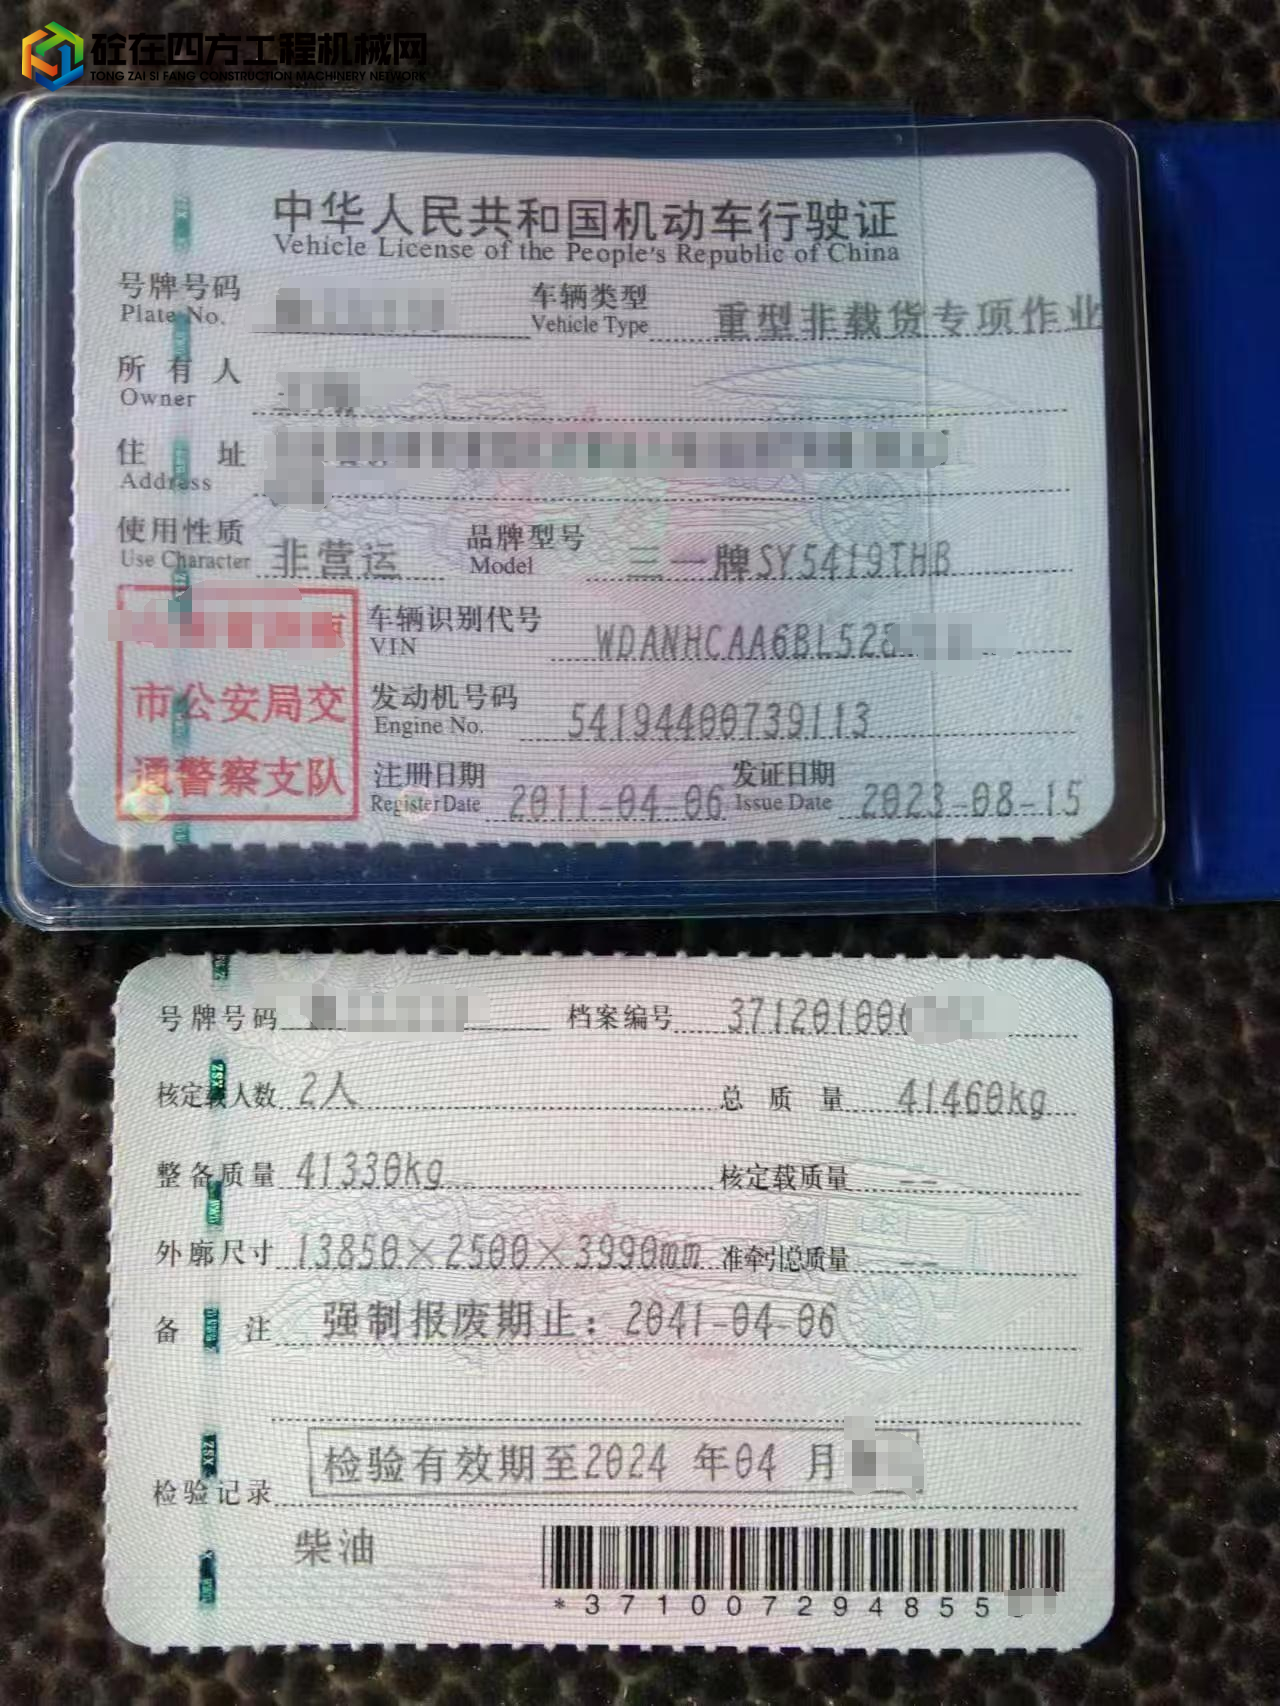 砼在四方工程机械网
TONG ZAI SI FANG CONSTRUCTION MACHINERY NETWORK
中华人民共和国机动车行驶证
Vehicle License of the People's Republic of China
号牌号码 车辆类型 重型非载货专项作业
Plate No. Vehicle Type
所有人
Owner
住址
Address
使用性质 非营运 品牌型号 三一牌SY5419THB
Use Character Model
车辆识别代号 WDANHCAA6BL528
VIN
市公安局交
通警察支队
发动机号码 54194400739113
Engine No.
注册日期 2011-04-06 发证日期 2023-08-15
Register Date Issue Date
号牌号码 档案编号 371201006
核定载人数 2人 总质量 41460kg
整备质量 41330kg 核定载质量 --
外廓尺寸 13850×2500×3990mm 准牵引总质量 --
备注 强制报废期止：2041-04-06
检验记录 检验有效期至2024 年04 月
柴油
*371007294855